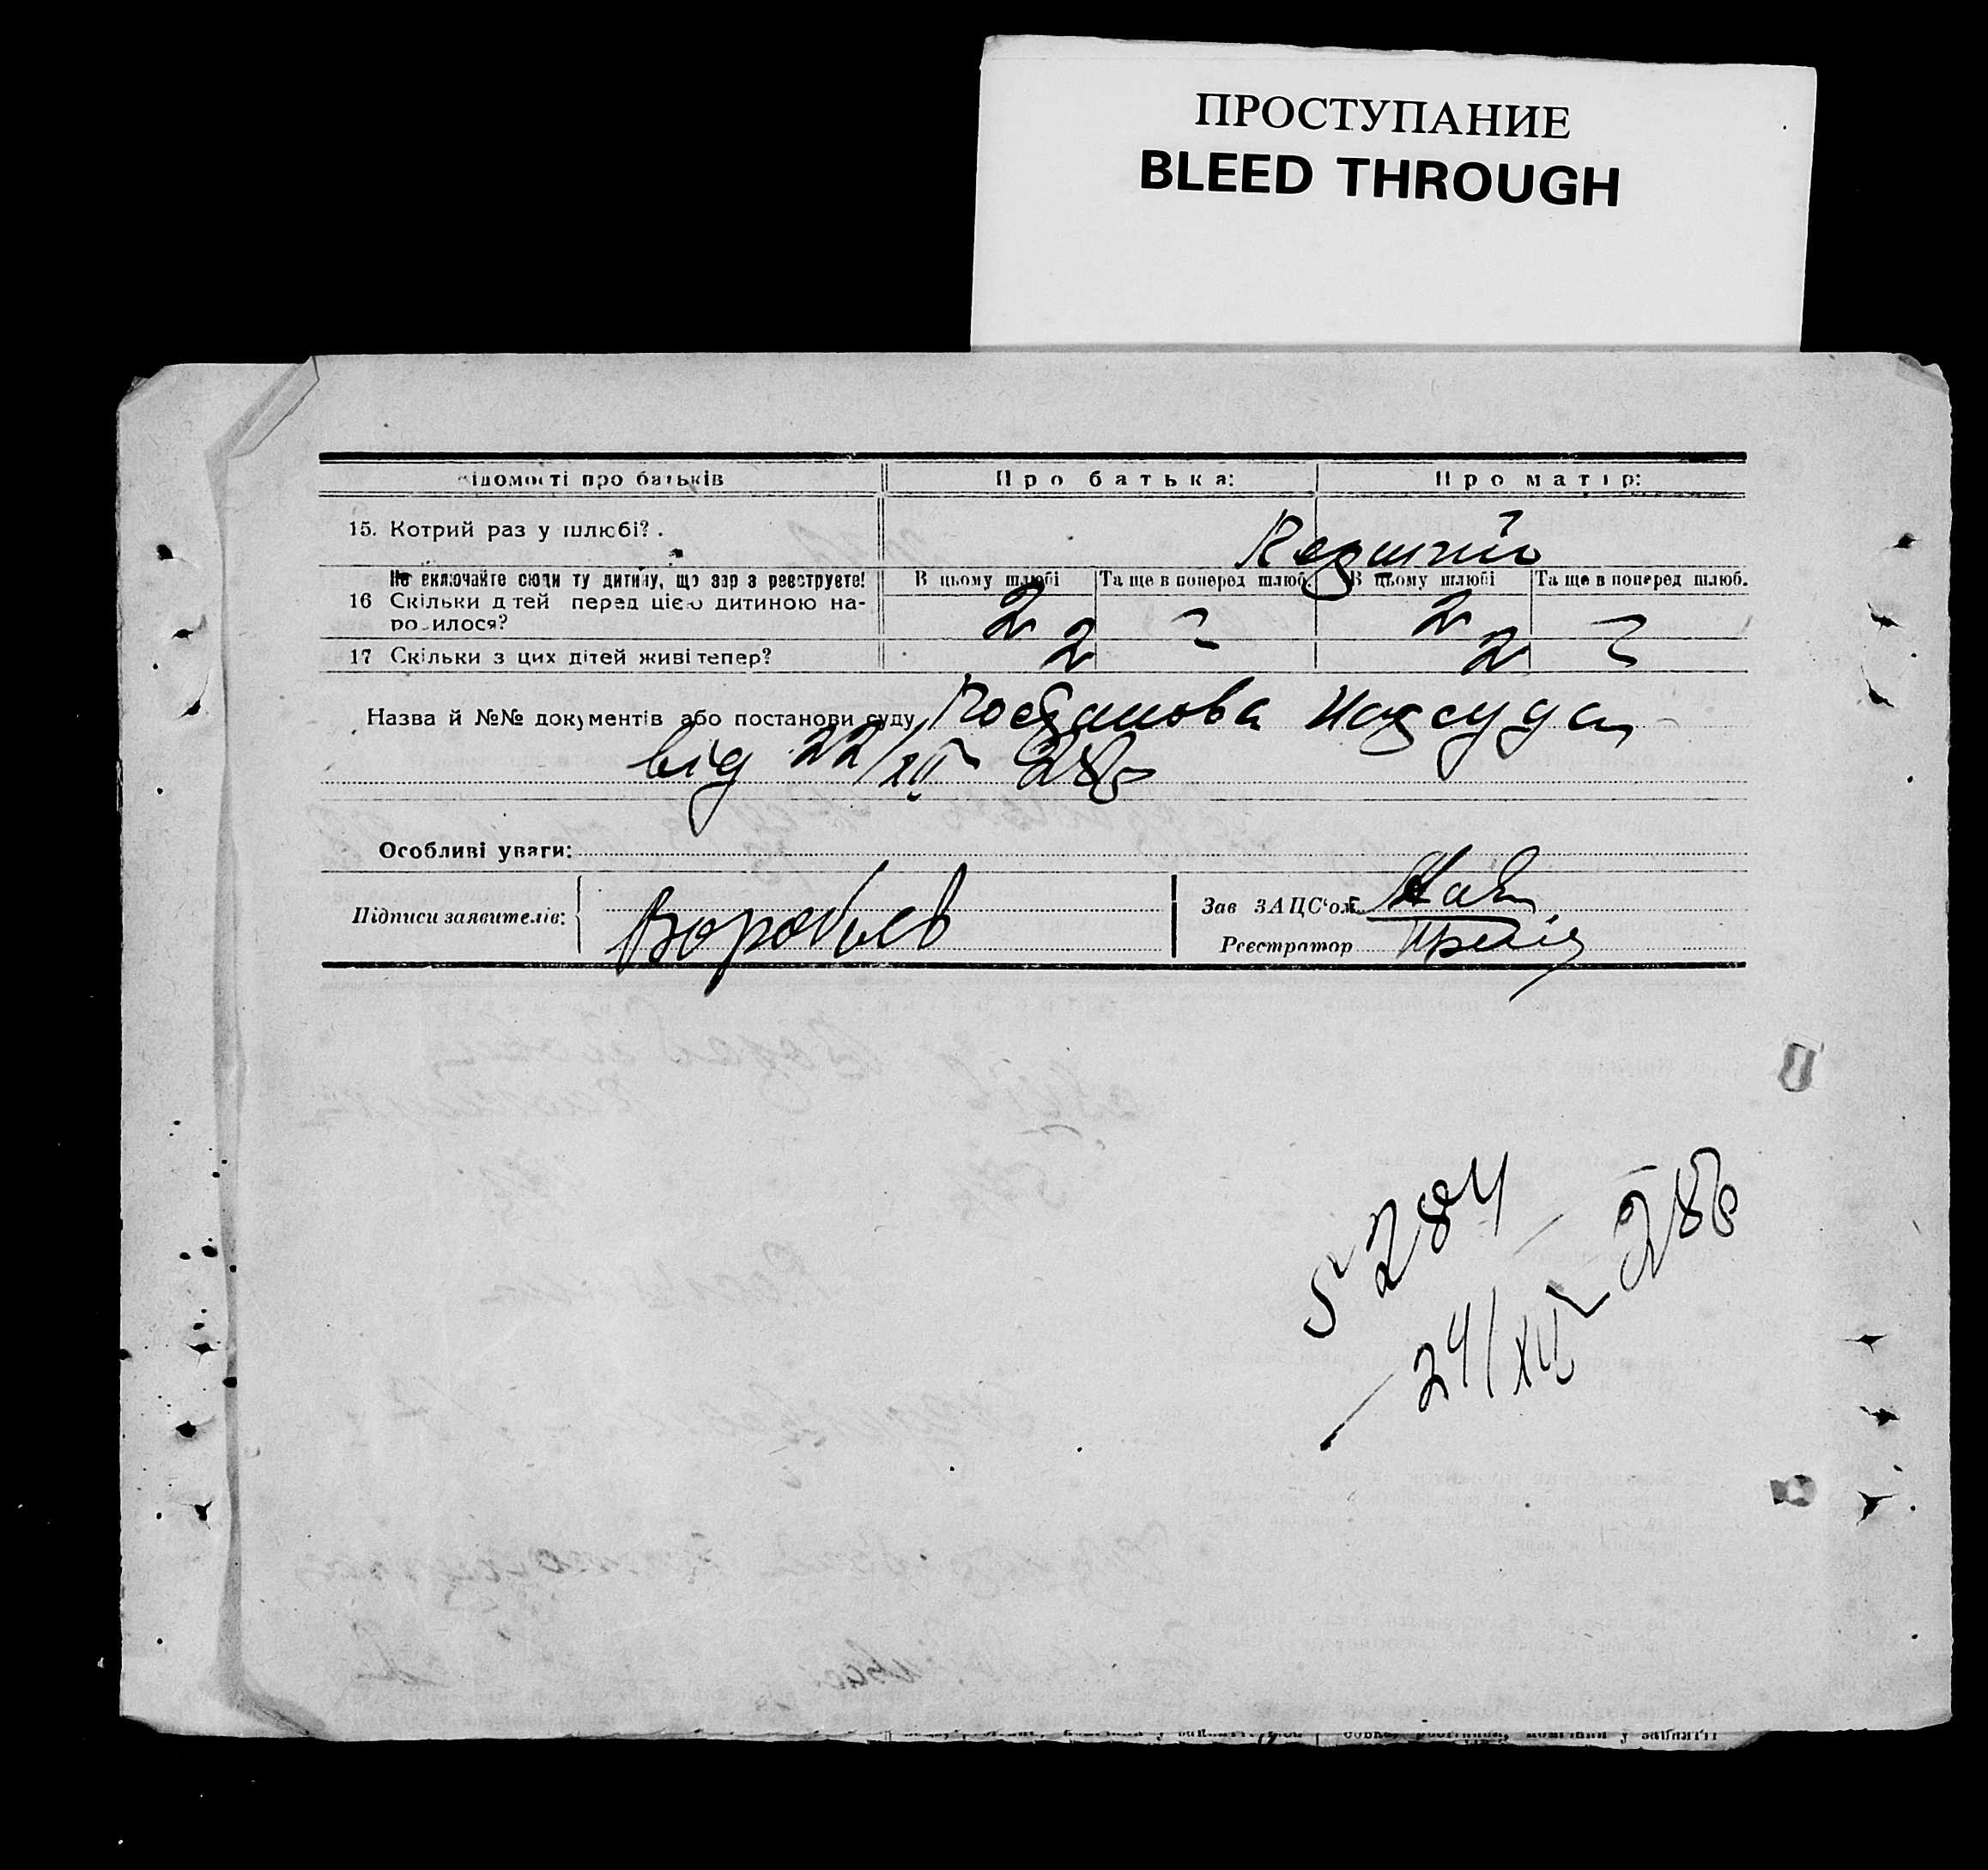 ПРОСТУПАНИЕ
BLEED THROUGH
ідомості про батьків
Про батька:
Про матір:
15. Котрий раз у шлюбі?
Не включайте сюди ту дитину, що зар з реєструєте!
16 Скільки д тей перед цією дитиною на-
ро илося?
В цьому шлюбі
Та ще в поперед шлюб.
В цьому шлюбі
Та ще в поперед шлюб.
2
2
17 Скільки з цих дітей живі тепер?
2
2
Назва й №№ документів або постанови суду Постанова Нарсуда
від 22/XII 28р
Особливі уваги:
Підписи заявителів:
Воробьев
Зав ЗАЦС'ом
Реєстратор
5284
24/XII 28р